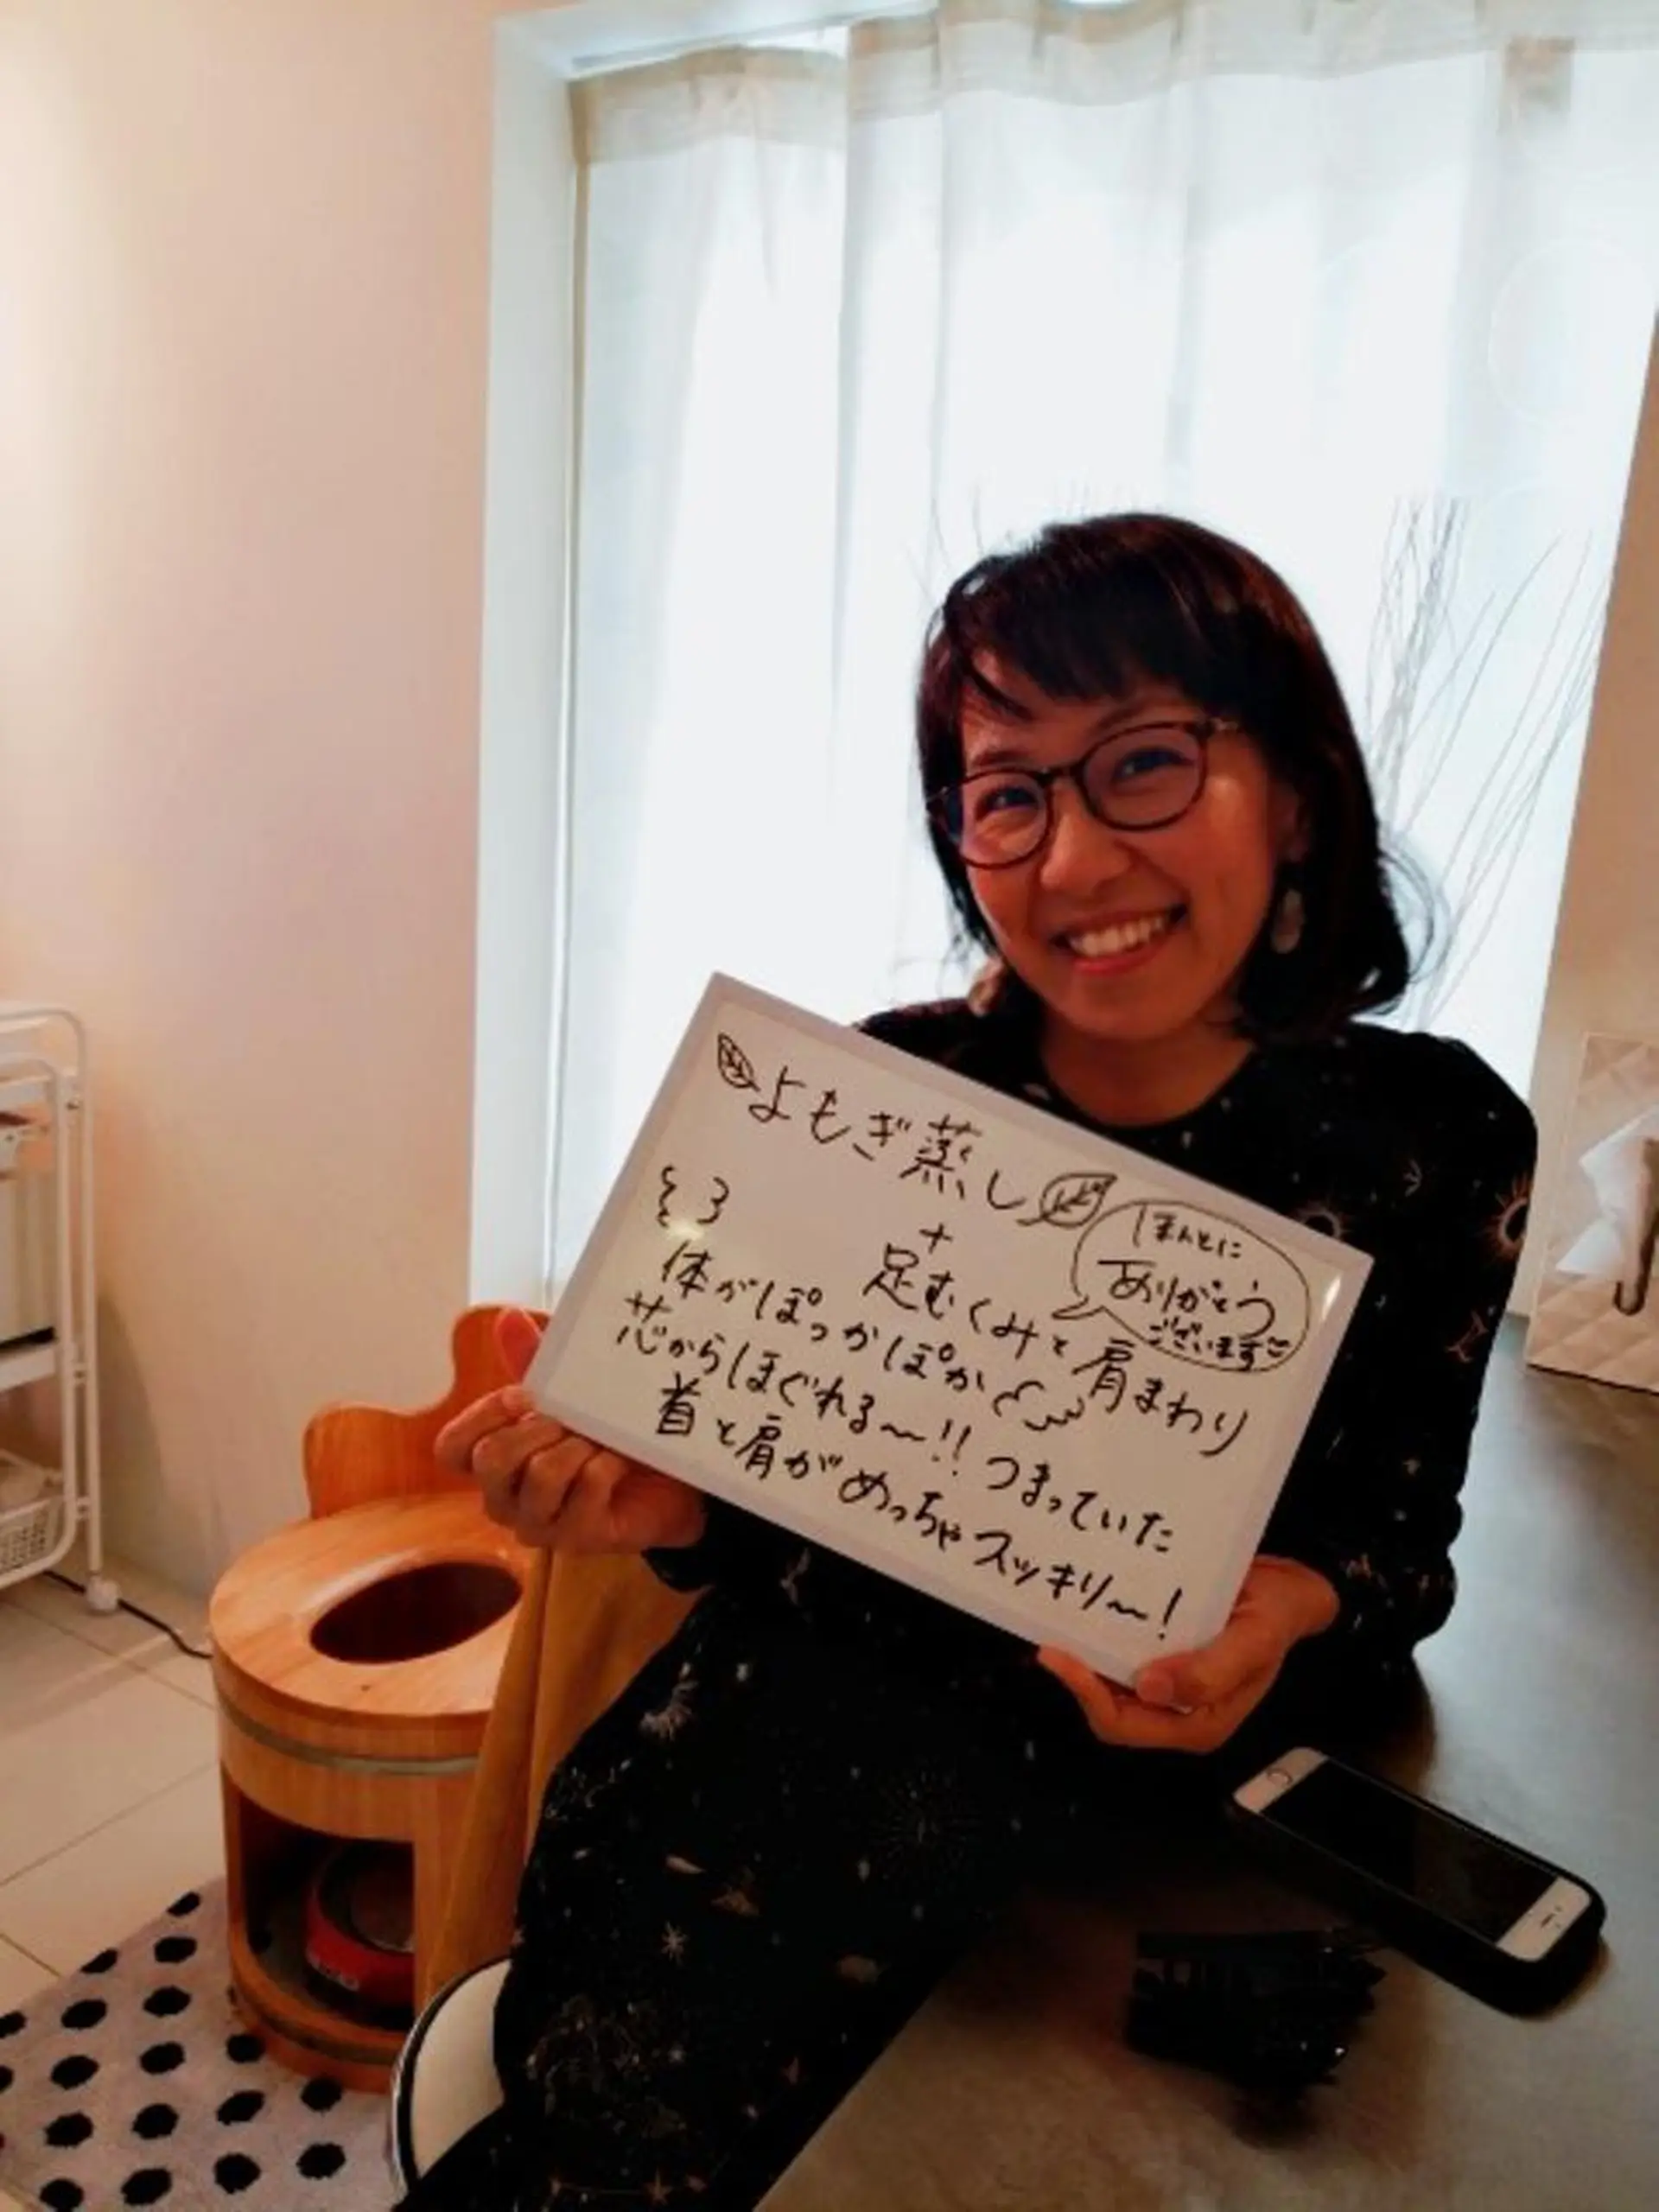 よもぎ蒸し
+
足むくみと肩まわり
ほんとに
ありがとう
ございます
体がぽっかぽか
芯からほぐれる〜!! つまっていた
首と肩がめっちゃスッキリ〜!